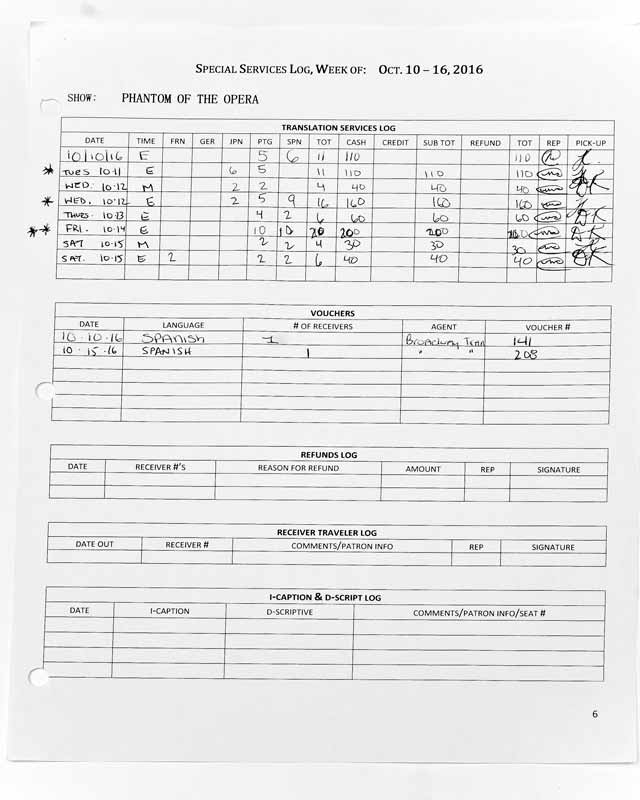 SPECIAL SERVICES LOG, WEEK OF: OCT. 10 – 16, 2016
SHOW: PHANTOM OF THE OPERA
TRANSLATION SERVICES LOG
DATE TIME FRN GER JPN PTG SPN TOT CASH CREDIT SUB TOT REFUND TOT REP PICK-UP
10/10/16 E 5 6 11 110 110
* TUES 10·11 E 6 5 11 110 110 110
WED. 10·12 M 2 2 4 40 40 40 DK
* WED. 10·12 E 2 5 9 16 160 160 160
THURS. 10·13 E 4 2 6 60 60 60 DK
** FRI. 10·14 E 10 10 20 200 200 200 DK
SAT 10·15 M 2 2 4 30 30 30
SAT. 10·15 E 2 2 2 6 40 40 40 DK
VOUCHERS
DATE LANGUAGE # OF RECEIVERS AGENT VOUCHER #
10-10-16 SPANISH 1 Broadway 141
10·15·16 SPANISH 1 " " 208
REFUNDS LOG
DATE RECEIVER #'S REASON FOR REFUND AMOUNT REP SIGNATURE
RECEIVER TRAVELER LOG
DATE OUT RECEIVER # COMMENTS/PATRON INFO REP SIGNATURE
I-CAPTION & D-SCRIPT LOG
DATE I-CAPTION D-SCRIPTIVE COMMENTS/PATRON INFO/SEAT #
6